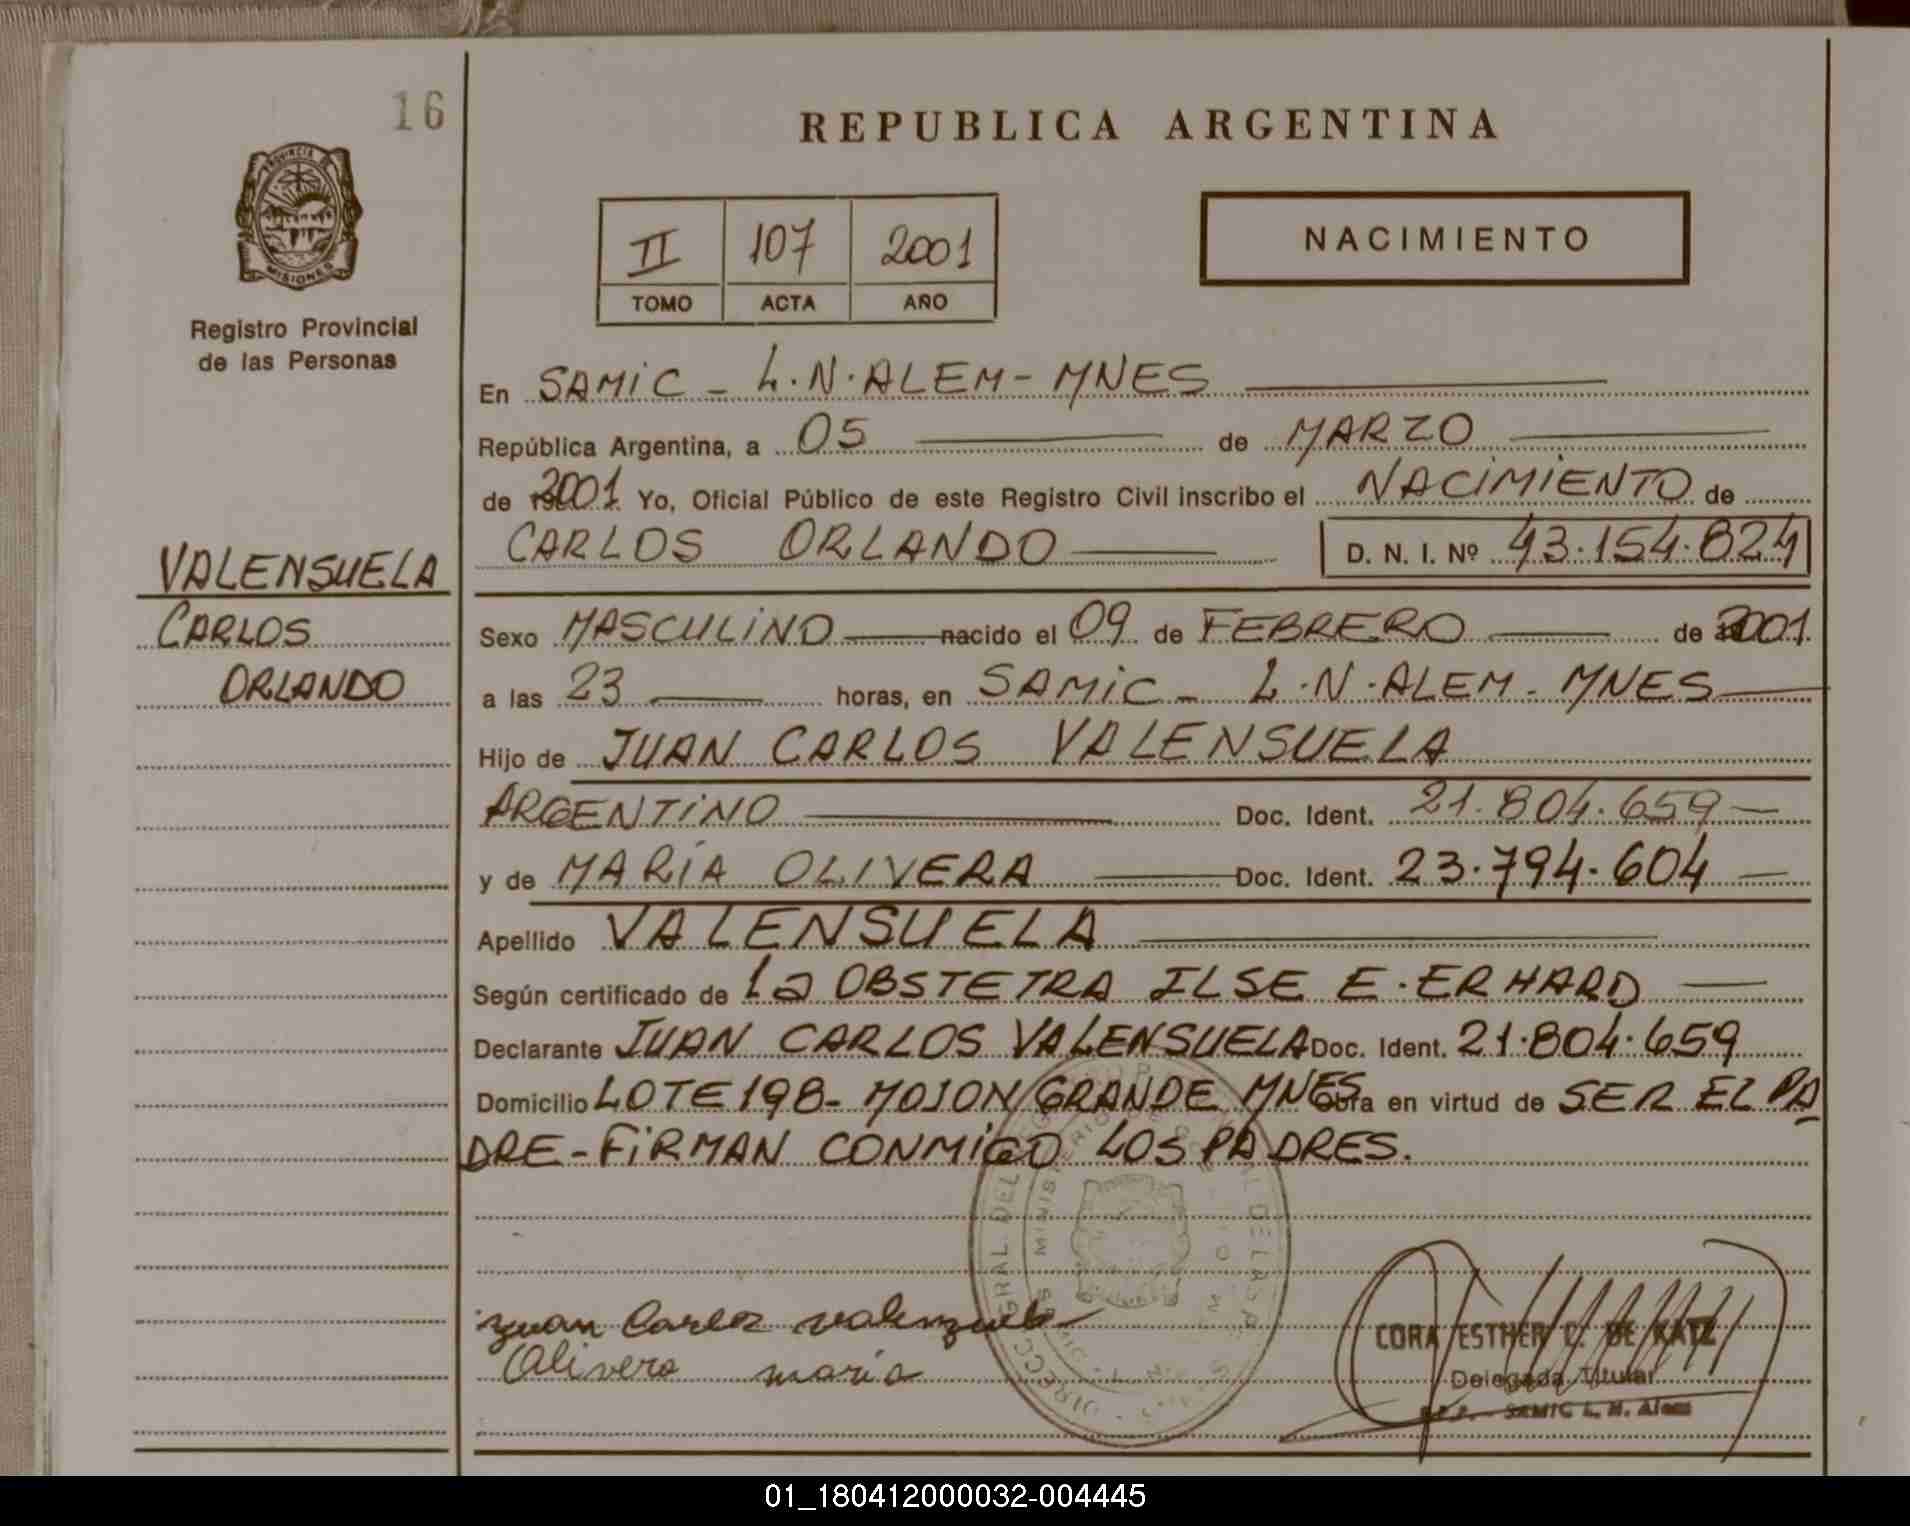 16
REPUBLICA ARGENTINA
PROVINCIA DE
MISIONES
Registro Provincial
de las Personas
II 107 2001
TOMO ACTA AÑO
NACIMIENTO
En SAMIC - L.N.ALEM - MNES
República Argentina, a 05 de MARZO
de 2001 Yo, Oficial Público de este Registro Civil inscribo el NACIMIENTO de
CARLOS ORLANDO D. N. I. Nº 43.154.824
VALENSUELA
CARLOS
ORLANDO
Sexo MASCULINO nacido el 09 de FEBRERO de 2001
a las 23 horas, en SAMIC - L.N.ALEM - MNES
Hijo de JUAN CARLOS VALENSUELA
ARGENTINO Doc. Ident. 21.804.659
y de MARÍA OLIVERA Doc. Ident. 23.794.604
Apellido VALENSUELA
Según certificado de La OBSTETRA ILSE E. ERHARD
Declarante JUAN CARLOS VALENSUELA Doc. Ident. 21.804.659
Domicilio LOTE 198 - MOJON GRANDE MNES Obra en virtud de SER EL PA
DRE - FIRMAN CONMIGO LOS PADRES.
Juan Carlos Valenzuela
Olivera maria
CORA ESTHER C. DE KATZ
Delegada Titular
SAMIC L. N. Alem
01_180412000032-004445